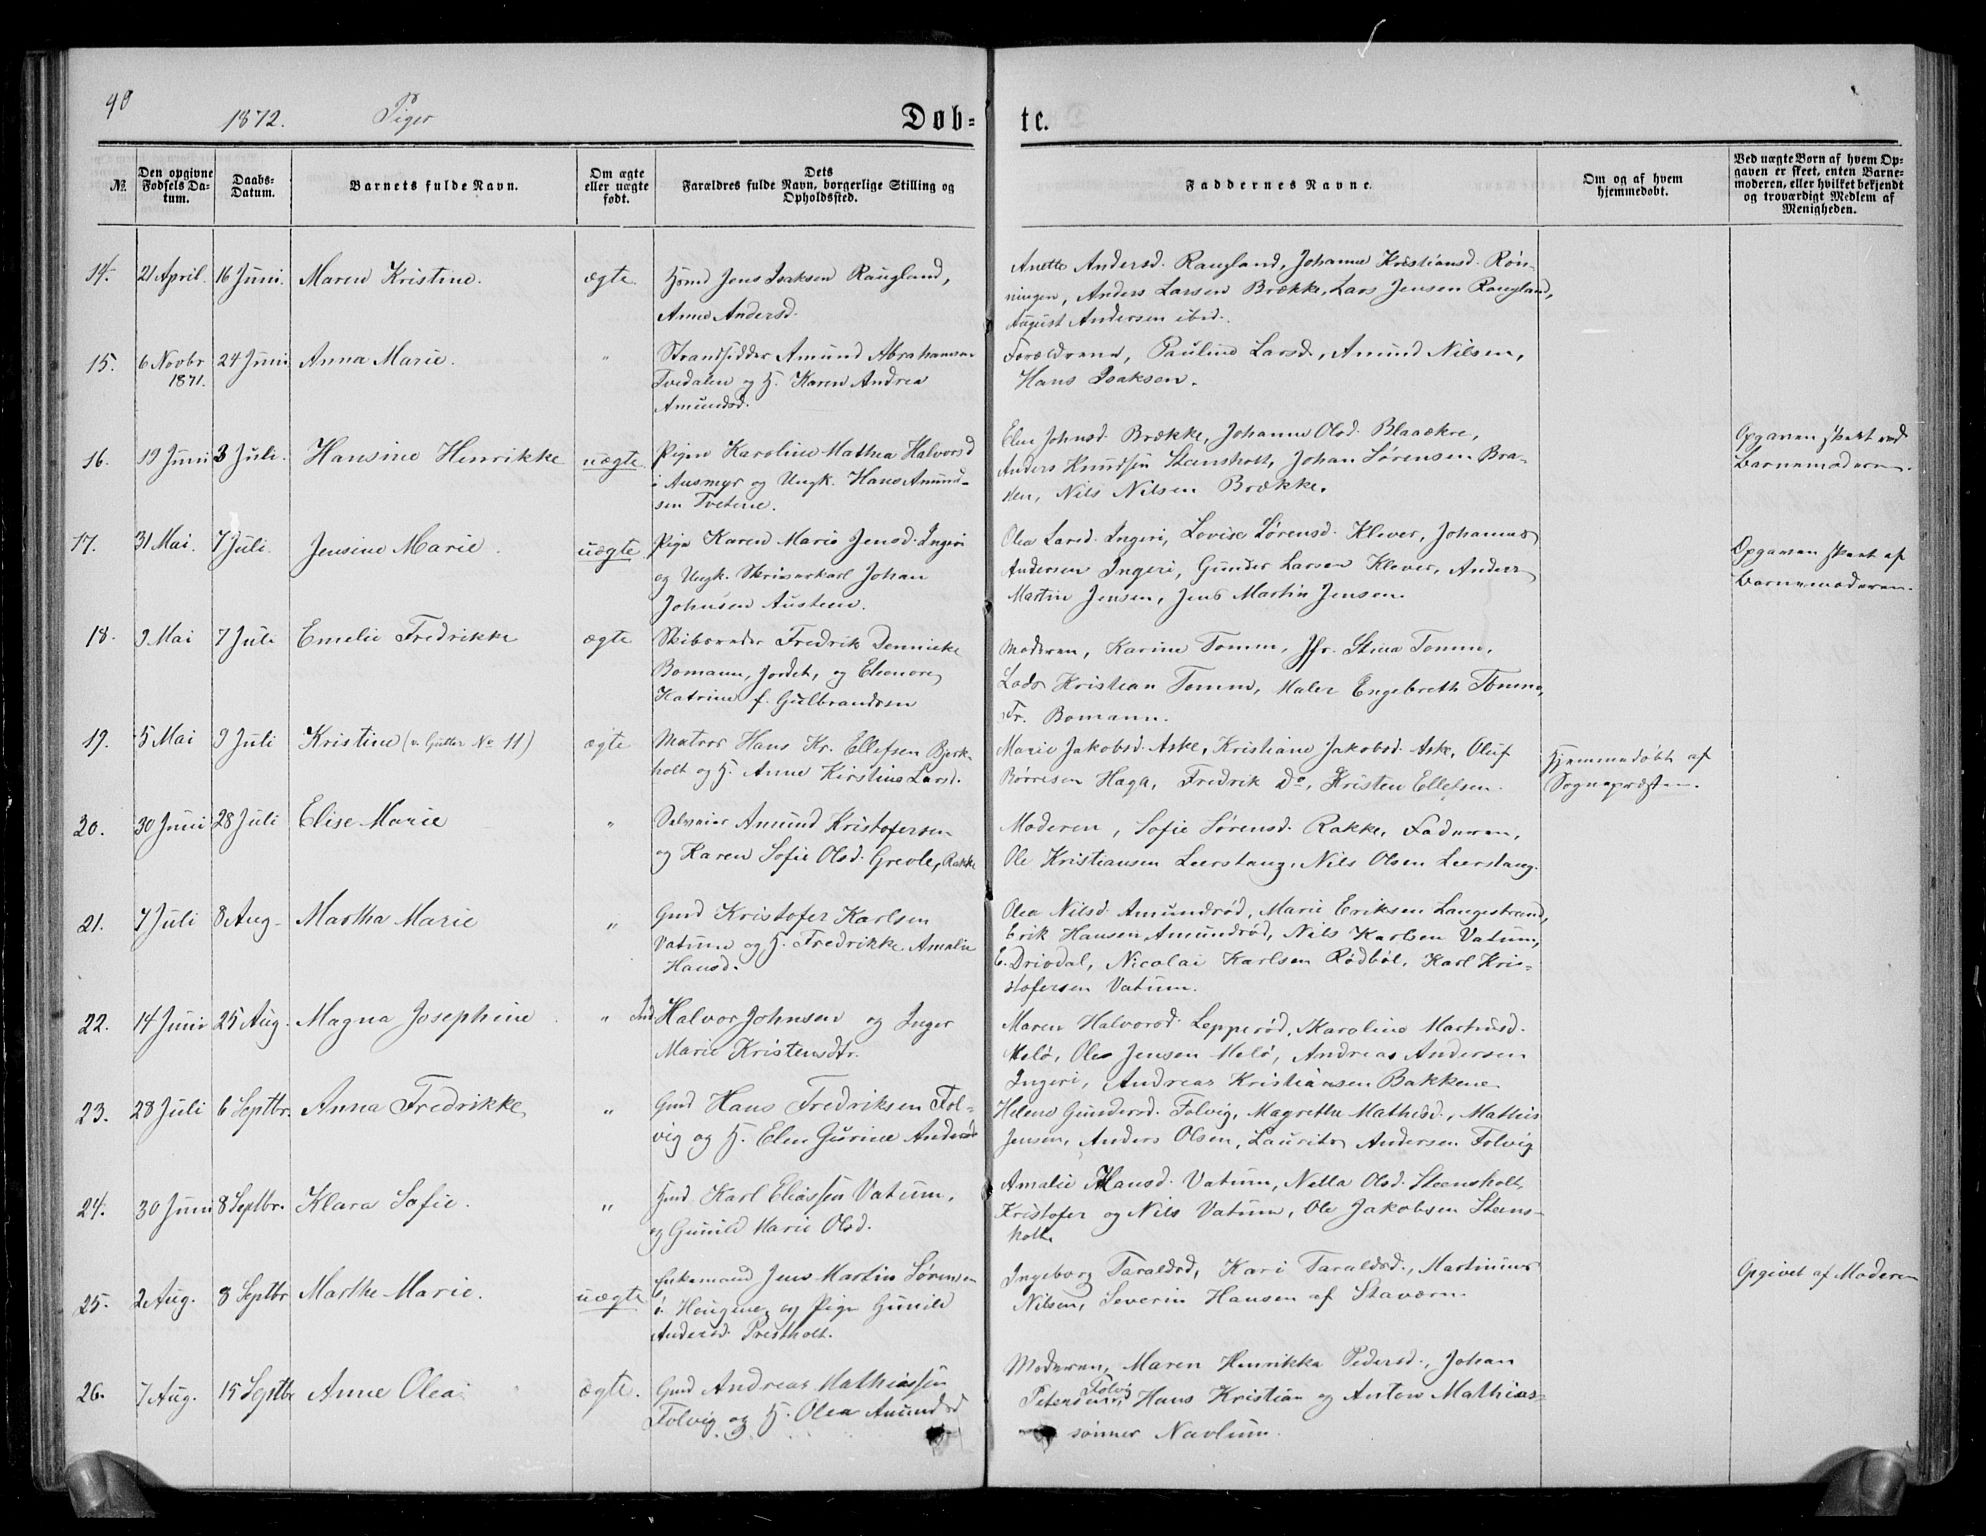 40
1872. Piger
Døb-
te.
№
Den opgivne Fødsels Da-tum.
Daabs-Datum.
Barnets fulde Navn.
Om ægte eller uægte født.
Dets Forældres fulde Navn, borgerlige Stilling og Opholdssted.
Faddernes Navne.
Om og af hvem hjemmedøbt.
Ved uægte Børn af hvem Op-gaven er skeet, enten Barne-moderen, eller hvilket bekjendt og troværdigt Medlem af Menigheden.
14. 21 April. 16 Juni. Maren Kristine. ægte
Jens Isaksen Raugland,
Anne Andersd.
Anette Andersd. Raugland, Johanne Kristiansd. Røn-
ningen, Anders Larsen Brække, Lars Jensen Raugland,
August Andersen ibid.
15. 6 Novbr 1871. 24 Juni Anna Marie. "
Strandsidder Amund Abrahamsen
Tvedalen og H. Karen Andrea
Amundsd.
Forældrene, Pauline Larsd., Amund Nilsen,
Hans Isaksen.
16. 19 Juni 3 Juli. Hansine Henrikke uægte
Pigen Karoline Mathea Halvorsd
i Ausmyr og Ungk. Hans Amund-
sen Tvetene.
Elen Johnsd. Brække, Johanne Olsd. Blaaekre,
Anders Knudsen Stensholt, Johan Sørensen Bra-
ten, Nils Nilsen Brække.
Opgaven skeet ved
Barnemoderen.
17. 31 Mai. 7 Juli. Jensine Marie. uægte
Pige Karen Marie Jensd. Ingeri
og Ungk. Skriverkarl Johan
Johnsen Austene.
Olea Larsd. Ingeri, Lovise Sørensd. Klever, Johannes
Andersen Ingeri, Gunder Larsen Klever, Anders
Martin Jensen, Jens Martin Jensen.
Opgaven skeet af
Barnemoderen.
18. 9 Mai 7 Juli Emelie Fredrikke ægte
Skibsreder Fredrik Dennicke
Bomann, Jordet, og Eleonore
Katrine f. Gulbrandsen
Moderen, Karine Tomm, Jfr. Stina Tomm,
Lods Kristian Tomm, Maler Engebreth Tomm,
Fr. Bomann.
19. 5 Mai 9 Juli Kristine (v. Gutter No 11) ægte
Matros Hans Kr. Ellefsen Bjerk-
holt og H. Anne Kirstine Larsd.
Marie Jakobsd. Aske, Kristiane Jakobsd. Aske, Oluf
Børresen Haga, Fredrik Do, Kristen Ellefsen.
Hjemmedøbt af
Sognepræsten.
20. 30 Juni 28 Juli Elise Marie "
Selveier Amund Kristofersen
og Karen Sofie Olsd. Grevle, Rakke
Moderen, Sofie Sørensd. Rakke, Faderen,
Ole Kristiansen Leerstang, Nils Olsen Leerstang.
21. 7 Juli 8 Aug. Martha Marie "
Gmd Kristofer Karlsen
Vatum og H. Fredrikke Amalie
Hansd.
Olea Nilsd. Amundrød, Marie Eriksen Langestrand,
Erik Hansen Amundrød, Nils Karlsen Vatum,
E. Drivdal, Nicolai Karlsen Rødbøl, Karl Kris-
stofersen Vatum.
22. 14 Juni 25 Aug. Magna Josephine "
Ind. Halvor Johnsen og Inger
Marie Kristensdtr.
Maren Halvorsd. Lepperød, Karoline Martinsd.
Melø, Ole Jensen Melø, Andreas Andersen
Ingeri, Andreas Kristiansen Bakkene
23. 28 Juli 6 Septbr. Anna Fredrikke "
Gmd Hans Fredriksen Fol-
vig og H. Elen Gurine Andersd
Helene Gundersd. Folvig, Magrethe Mathisd., Mathis
Jensen, Anders Olsen, Laurits Andersen Folvig
24. 30 Juni 8 Septbr. Klara Sofie. "
Gmd. Karl Eliassen Vatum,
og Gunild Marie Olsd.
Amalie Hansd. Vatum, Nella Olsd. Steensholt,
Kristofer og Nils Vatum, Ole Jakobsen Steens-
holt.
25. 2 Aug. 8 Septbr Marthe Marie. uægte
Enkemand Jens Martin Sørensen
i Haugene og Pige Gunild
Andersd. Prestholt.
Ingeborg Taraldsd, Kari Taraldsd., Martinius
Nilsen, Severin Hansen af Stavern.
Opgivet af Moderen
26. 7 Aug. 15 Septbr Anne Olea ægte.
Gmd Andreas Mathiassen
Folvig og H. Olea Amundsd
Moderen, Maren Henrikka Pedersd., Johan
Petersen Folvig, Hans Kristian og Anton Mathias-
sønner Navlum.